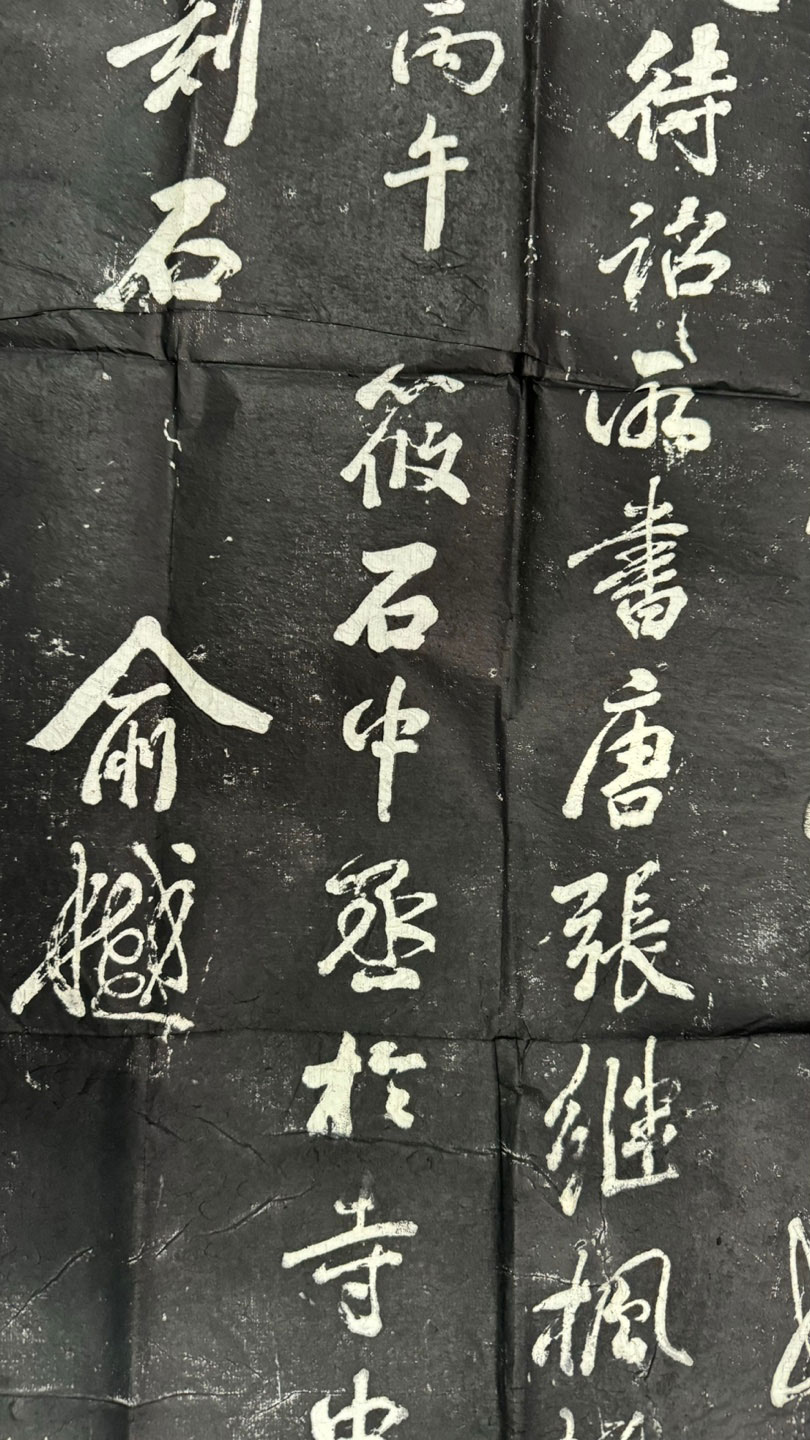 待詔所書唐張継楓
丙午筱石中丞於寺中
刻石
俞樾